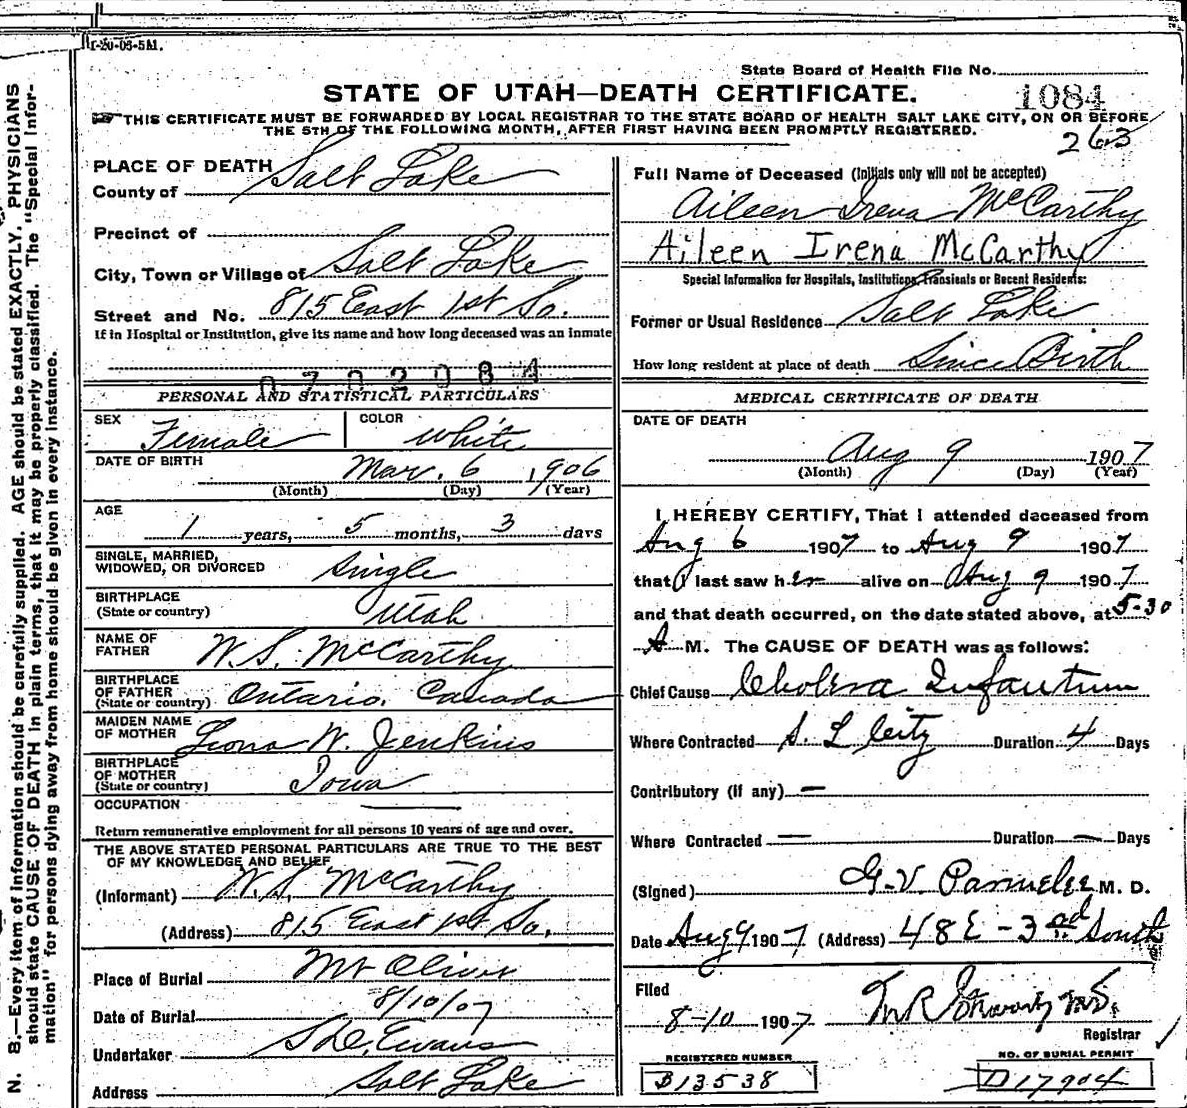 I-20-06-5M.
State Board of Health File No.
STATE OF UTAH—DEATH CERTIFICATE. 1084
THIS CERTIFICATE MUST BE FORWARDED BY LOCAL REGISTRAR TO THE STATE BOARD OF HEALTH SALT LAKE CITY, ON OR BEFORE
THE 5TH OF THE FOLLOWING MONTH, AFTER FIRST HAVING BEEN PROMPTLY REGISTERED.
263
N. B.—Every item of information should be carefully supplied. AGE should be stated EXACTLY. PHYSICIANS
should state CAUSE OF DEATH in plain terms, that it may be properly classified. The "Special Infor-
mation" for persons dying away from home should be given in every instance.
PLACE OF DEATH
County of Salt Lake
Precinct of
City, Town or Village of Salt Lake
Street and No. 815 East 1st So.
If in Hospital or Institution, give its name and how long deceased was an inmate
0702084
PERSONAL AND STATISTICAL PARTICULARS
SEX Female COLOR White
DATE OF BIRTH Mar. 6 1906
(Month) (Day) (Year)
AGE
1 years, 5 months, 3 days
SINGLE, MARRIED,
WIDOWED, OR DIVORCED Single
BIRTHPLACE
(State or country) Utah
NAME OF
FATHER W. S. McCarthy
BIRTHPLACE
OF FATHER
(State or country) Ontario, Canada
MAIDEN NAME
OF MOTHER Leona W. Jenkins
BIRTHPLACE
OF MOTHER
(State or country) Iowa
OCCUPATION
Return remunerative employment for all persons 10 years of age and over.
THE ABOVE STATED PERSONAL PARTICULARS ARE TRUE TO THE BEST
OF MY KNOWLEDGE AND BELIEF
(Informant) W. S. McCarthy
(Address) 815 East 1st So.
Place of Burial Mt Olivet
Date of Burial 8/10/07
Undertaker S. D. Evans
Address Salt Lake
Full Name of Deceased (Initials only will not be accepted)
Aileen Irena McCarthy
Aileen Irena McCarthy
Special Information for Hospitals, Institutions, Transients or Recent Residents:
Former or Usual Residence Salt Lake
How long resident at place of death Since Birth
MEDICAL CERTIFICATE OF DEATH
DATE OF DEATH
Aug 9 1907
(Month) (Day) (Year)
I HEREBY CERTIFY, That I attended deceased from
Aug 6 1907 to Aug 9 1907
that I last saw her alive on Aug 9 1907
and that death occurred, on the date stated above, at 5-30
A M. The CAUSE OF DEATH was as follows:
Chief Cause Cholera Infantum
Where Contracted S. L. City Duration 4 Days
Contributory (if any) —
Where Contracted — Duration — Days
(Signed) G. V. Parmelee M. D.
Date Aug 9 1907 (Address) 48 E - 3rd South
Filed
8-10 1907 M.D.
Registrar
REGISTERED NUMBER
B13538
NO. OF BURIAL PERMIT
D17904